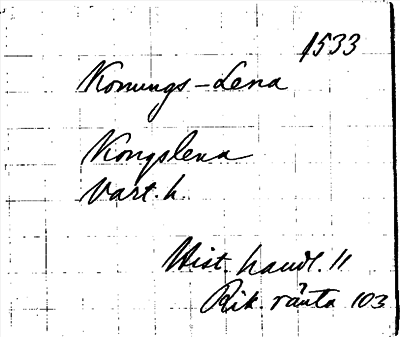 1533
Konungs-Lena
Kongslena
Vart. h.
Hist. handl. 11
Rik. ränta 103